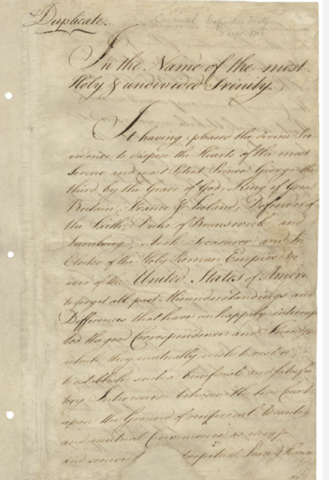 Duplicate.
In the Name of the most
Holy & undivided Trinity.
It having pleased the Divine Pro
vidence to dispose the Hearts of the most
Serene and most Potent Prince George the
third, by the Grace of God, King of Great
Britain, France & Ireland, Defender of
the Faith, Duke of Brunswick and
Lunebourg, Arch Treasurer and
Elector of the Holy Roman Empire
and of the United States of Amer
to forget all past Misunderstandings and
Differences that have unhappily interrup
ted the good Correspondence and Friend
which they mutually wish to
to establish such a beneficial and satisfac
tory Intercourse between the two Count
upon the Ground of reciprocal Advantages
and mutual Convenience as may
and secure Perpetual Peace & Harmony